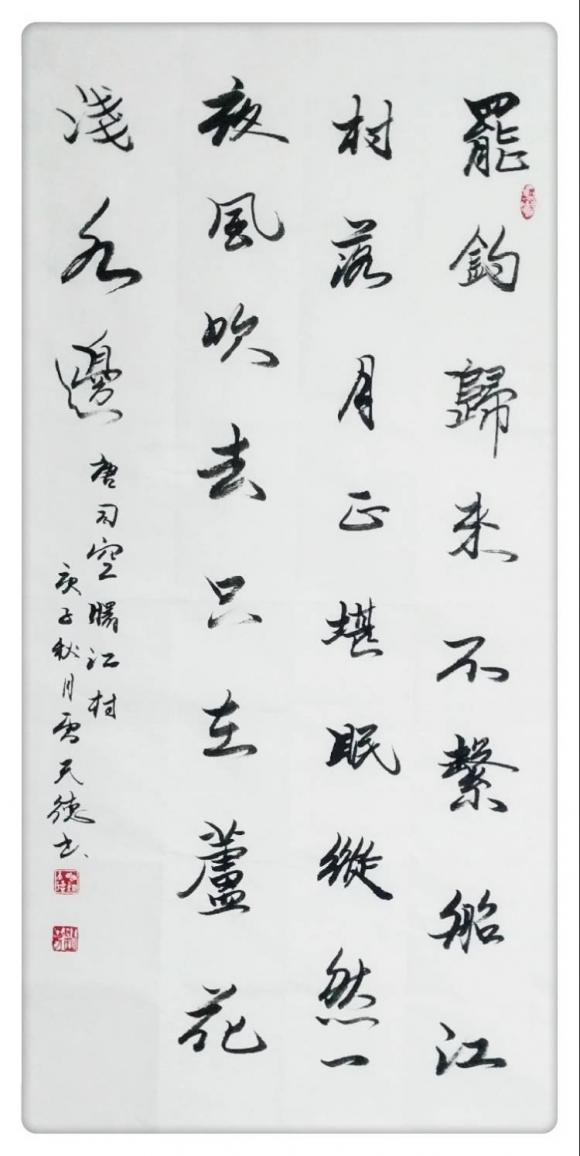 罷釣歸来不繫船江
村落月正堪眠縱然一
夜風吹去只在蘆花
淺水邊
唐司空曙江村
庚子秋月雷天德书